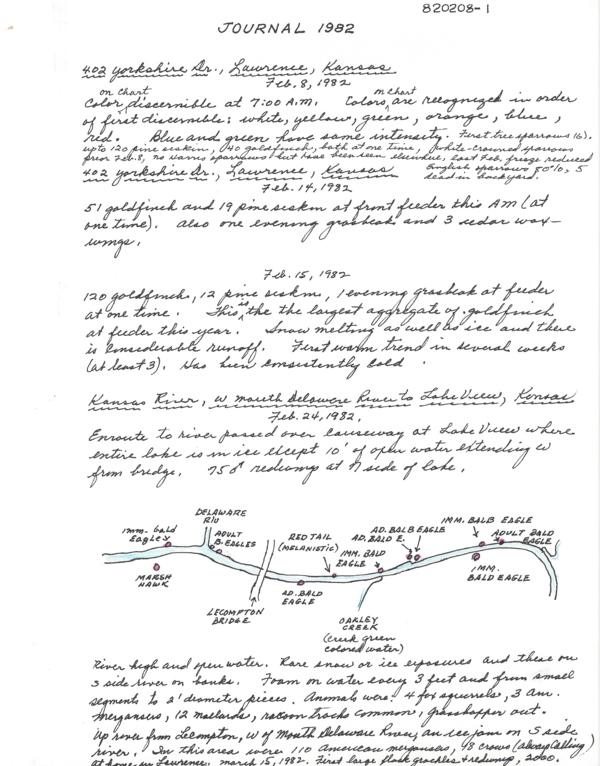 820208-1
JOURNAL 1982
402 Yorkshire Dr., Lawrence, Kansas
Feb. 8, 1982
on chart
on chart
Color discernible at 7:00 A.M. Colors are recognized in order
of first discernible: white, yellow, green, orange, blue,
red. Blue and green have same intensity. First tree sparrows (6).
up to 120 pine siskin, 40 goldfinch, both at one time, white-crowned sparrows
prior Feb. 8, no Harris sparrows but have been seen elsewhere, last Feb. freeze reduced
402 Yorkshire Dr., Lawrence, Kansas English sparrows 50%, 5
Feb. 14, 1982 dead in backyard.
51 goldfinch and 19 pine siskin at front feeder this AM (at
one time). Also one evening grosbeak and 3 cedar wax-
wings.
Feb. 15, 1982
120 goldfinch, 12 pine siskin, 1 evening grosbeak at feeder
at one time. This is the the largest aggregate of goldfinch
at feeder this year. Snow melting as well as ice and there
is considerable runoff. First warm trend in several weeks
(at least 3). Has been consistently cold.
Kansas River, W mouth Delaware River to Lake View, Kansas
Feb. 24, 1982.
Enroute to river passed over causeway at Lake View where
entire lake is in ice except 10' of open water extending W
from bridge. 75 ♂ redwings at N side of lake.
DELAWARE
RIV
imm. bald
Eagle
ADULT
B. EAGLES
RED TAIL
(MELANISTIC)
IMM. BALD
EAGLE
AD. BALB EAGLE
AD. BALD E.
IMM. BALB EAGLE
ADULT BALD
EAGLE
MARSH
HAWK
LECOMPTON
BRIDGE
AD. BALD
EAGLE
OAKLEY
CREEK
(creek green
colored water)
IMM.
BALD EAGLE
River high and open water. Rare snow or ice exposures and these on
S side river on banks. Foam on water every 3 feet and from small
segments to 2' diameter pieces. Animals were: 4 fox squirrels, 3 Am.
mergansers, 12 mallards, racoon tracks common, grasshopper out.
Up river from Lecompton, W of Mouth Delaware River, an ice jam on S side
river. In this area were 110 American mergansers, 48 crows (always calling)
at home in Lawrence. March 15, 1982. First large flock grackles + redwing, 2000.